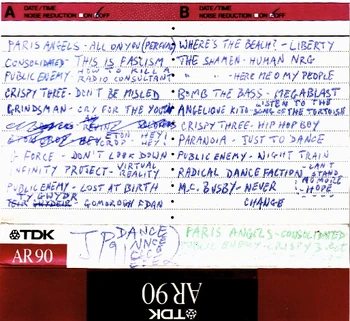 A DATE/TIME
NOISE REDUCTION ON OFF
B DATE/TIME
NOISE REDUCTION ON OFF
PARIS ANGELS - ALL ON YOU (PERFUME)
CONSOLIDATED - THIS IS FASCISM
PUBLIC ENEMY - HOW TO KILL A RADIO CONSULTANT
CRISPY THREE - DON'T BE MISLED
GRINDSMAN - CRY FOR THE YOUTH
G FORCE - DON'T LOOK DOWN
INFINITY PROJECT - VIRTUAL REALITY
PUBLIC ENEMY - LOST AT BIRTH
GWYDR
GOMOROGH EDAN
WHERE'S THE BEACH? - LIBERTY
THE SHAMEN - HUMAN NRG
" " - HERE ME O MY PEOPLE
BOMB THE BASS - MEGABLAST
ANGELIQUE KITO - LISTEN TO THE SONG OF THE TORTOISE
CRISPY THREE - HIP HOP BOY
PARANOIA - JUST TO DANCE
PUBLIC ENEMY - NIGHT TRAIN
RADICAL DANCE FACTION - CAN'T STAND NO MORE
M.C. BUSBY - NEVER HOPE CHANGE
TDK
AR90
JP
91
DANCE
PARIS ANGELS - CONSOLIDATED
PUBLIC ENEMY - CRISPY 3
TDK
AR90